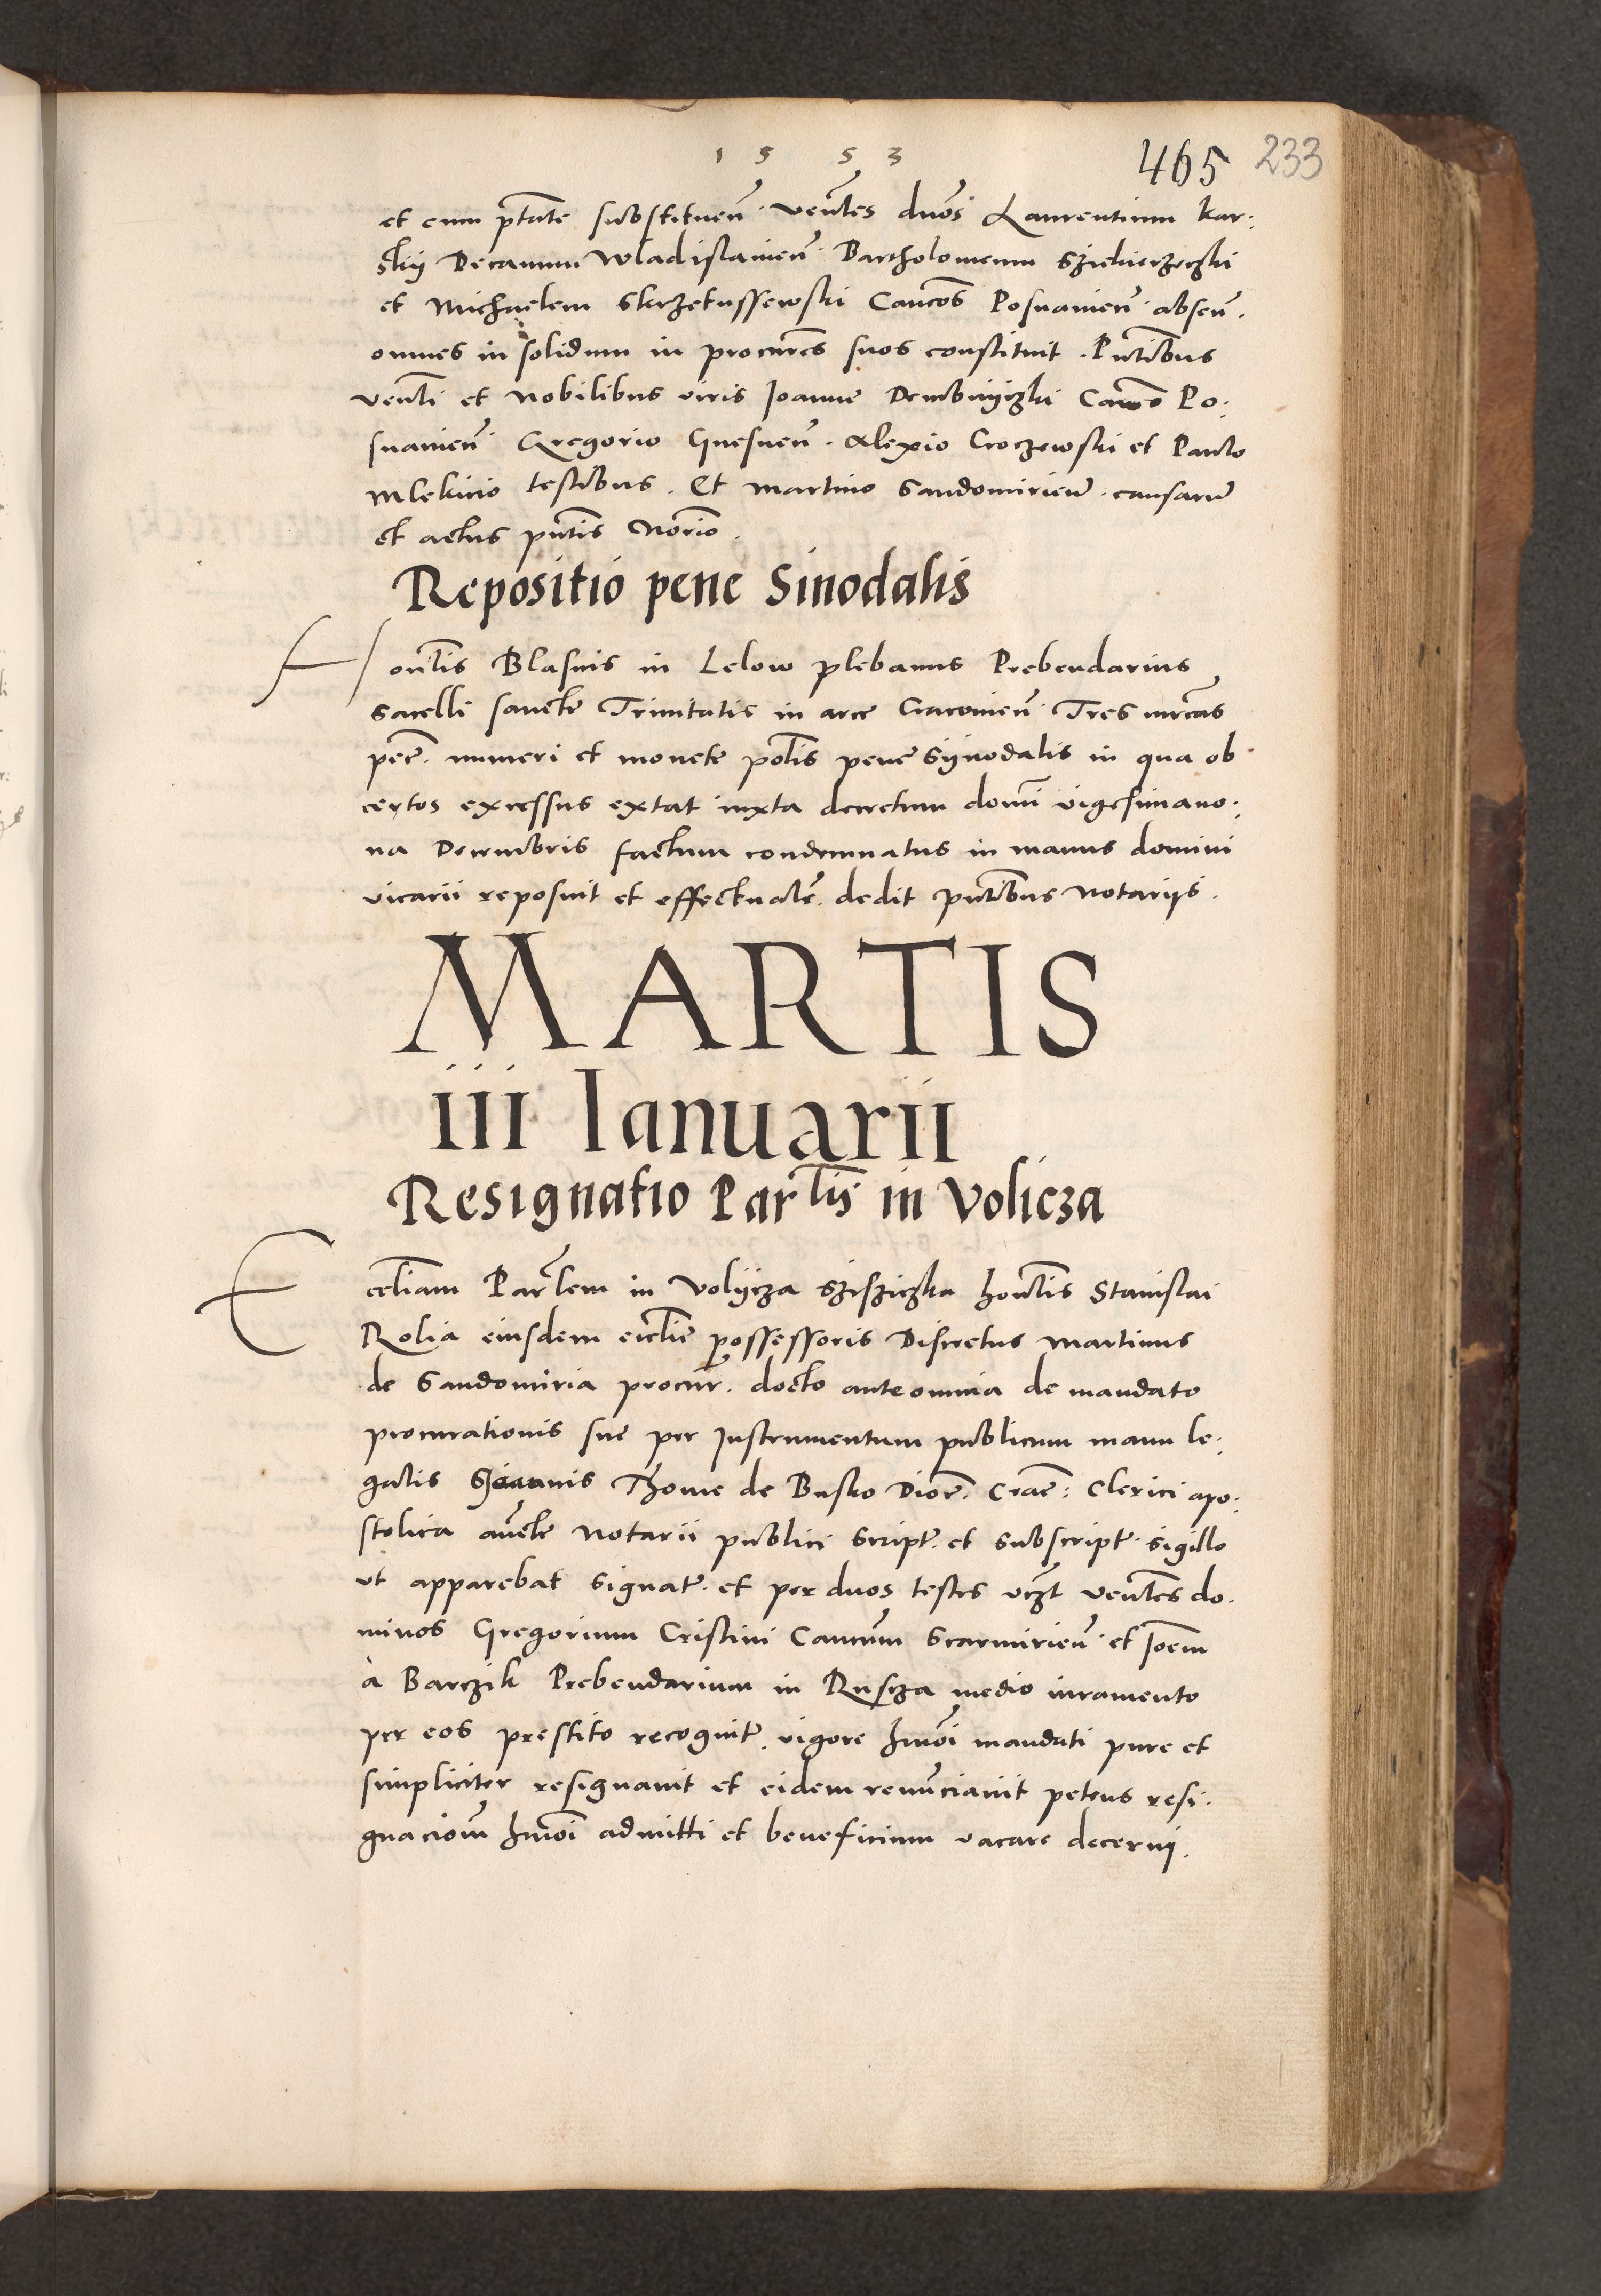 1553
465 233
et cum ptãte substituen̄. venles̄ dnos̄ Laurentium Kar:
skij Decanum Wladislauien̄. Bartholomeum Sziekierzeczki
et Michaelem Skrzetussewski Canc̄os Posnanien̄. absen̄.
omnes in solidum in procures̄ suos constituit. Pntibus̄
venli̅ et Nobilibus viris Joanne Dembnijczki Canc̄o Po:
snanien̄. Gregorio Gnesnen̄. Alexio Croczewski et Paulo
Mlekicio testibus. Et Martino Sandomirien̄. causarū
et actus pntis̄ Norio̅.
Repositio pene Sinodalis
Honlis̄ Blasius in Lelow plebanus Prebendarius
sacelli sancte Trinitatis in arce Cracouien̄. Tres mrcas̄
pec̄. numeri et monete polis̄ pene Sijnodalis in qua ob
certos excessus extat iuxta decretum domi̅ vigesimano:
na Decembris factum condemnatus in manus domini
vicarii reposuit et effectualr̄. dedit pntibus̄ Notarijs.
MARTIS
iii Ianuarii
Resignatio Parlis̄ in Volicza
Eccliam̄ Parlem̄ in Volijcza Sziesziczka honlis̄ Stanislai
Rolia eiusdem ecclie̅ possessoris Discretus Martinus
de Sandomiria procur̄. docto ante omnia de mandato
procurationis sue per Instrumentum publicum manu le:
galis Thome de Busko Dioc̄. Crac̄: Clerici apo:
stolica aucte̅ Notarii publici script̄. et subscript̄. sigillo
ut apparebat signat̄. et per duos testes vczt̄ venles̄ do:
minos Gregorium Cristini Cancum̄ Scarmirien̄. et Joem̄
à Barczik Prebendarium in Ruscza medio iuramento
per eos prestito recognit̄. vigore hmoi̅ mandati pure et
simpliciter resignauit et eidem renunciauit petens resi:
gnaciom̄ hmoi̅ admitti et beneficium vacare decerni.